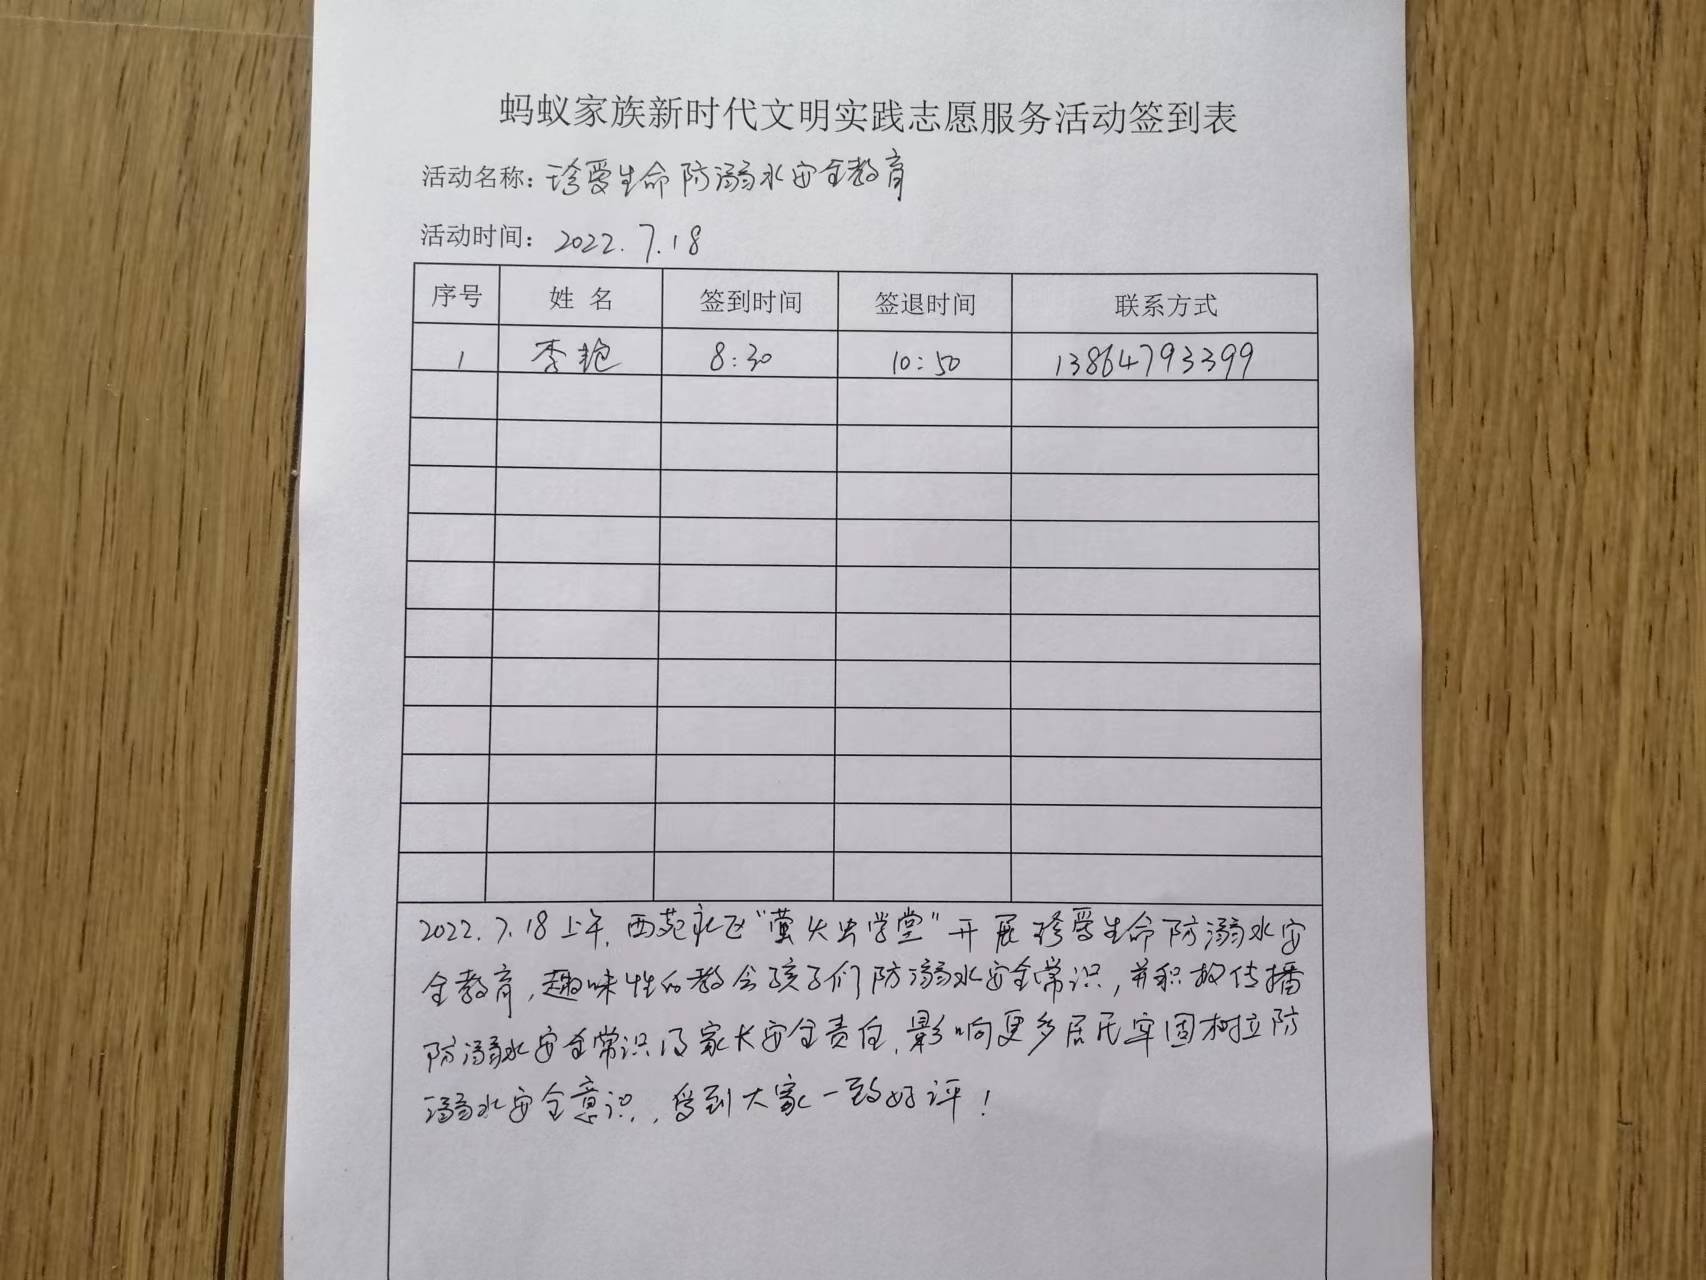 蚂蚁家族新时代文明实践志愿服务活动签到表
活动名称：珍爱生命防溺水安全教育
活动时间：2022.7.18
序号 姓名 签到时间 签退时间 联系方式
1 李艳 8:30 10:50 13864793399
2022.7.18上午，西苑社区“萤火虫学堂”开展珍爱生命防溺水安
全教育，趣味性的教会孩子们防溺水安全常识，并积极传播
防溺水安全常识及家长安全责任，影响更多居民牢固树立防
溺水安全意识，受到大家一致好评！